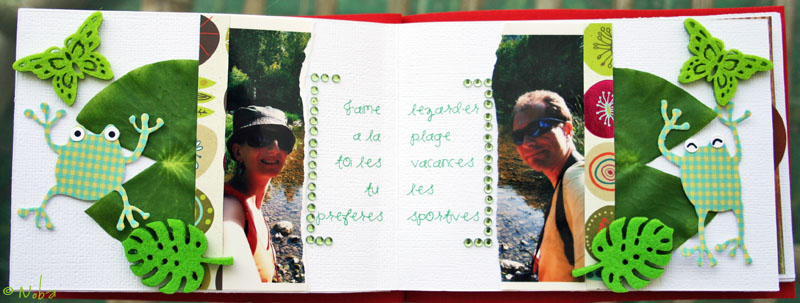 J'aime lezarder
a la plage
toi les vacances
tu les
preferes sportives